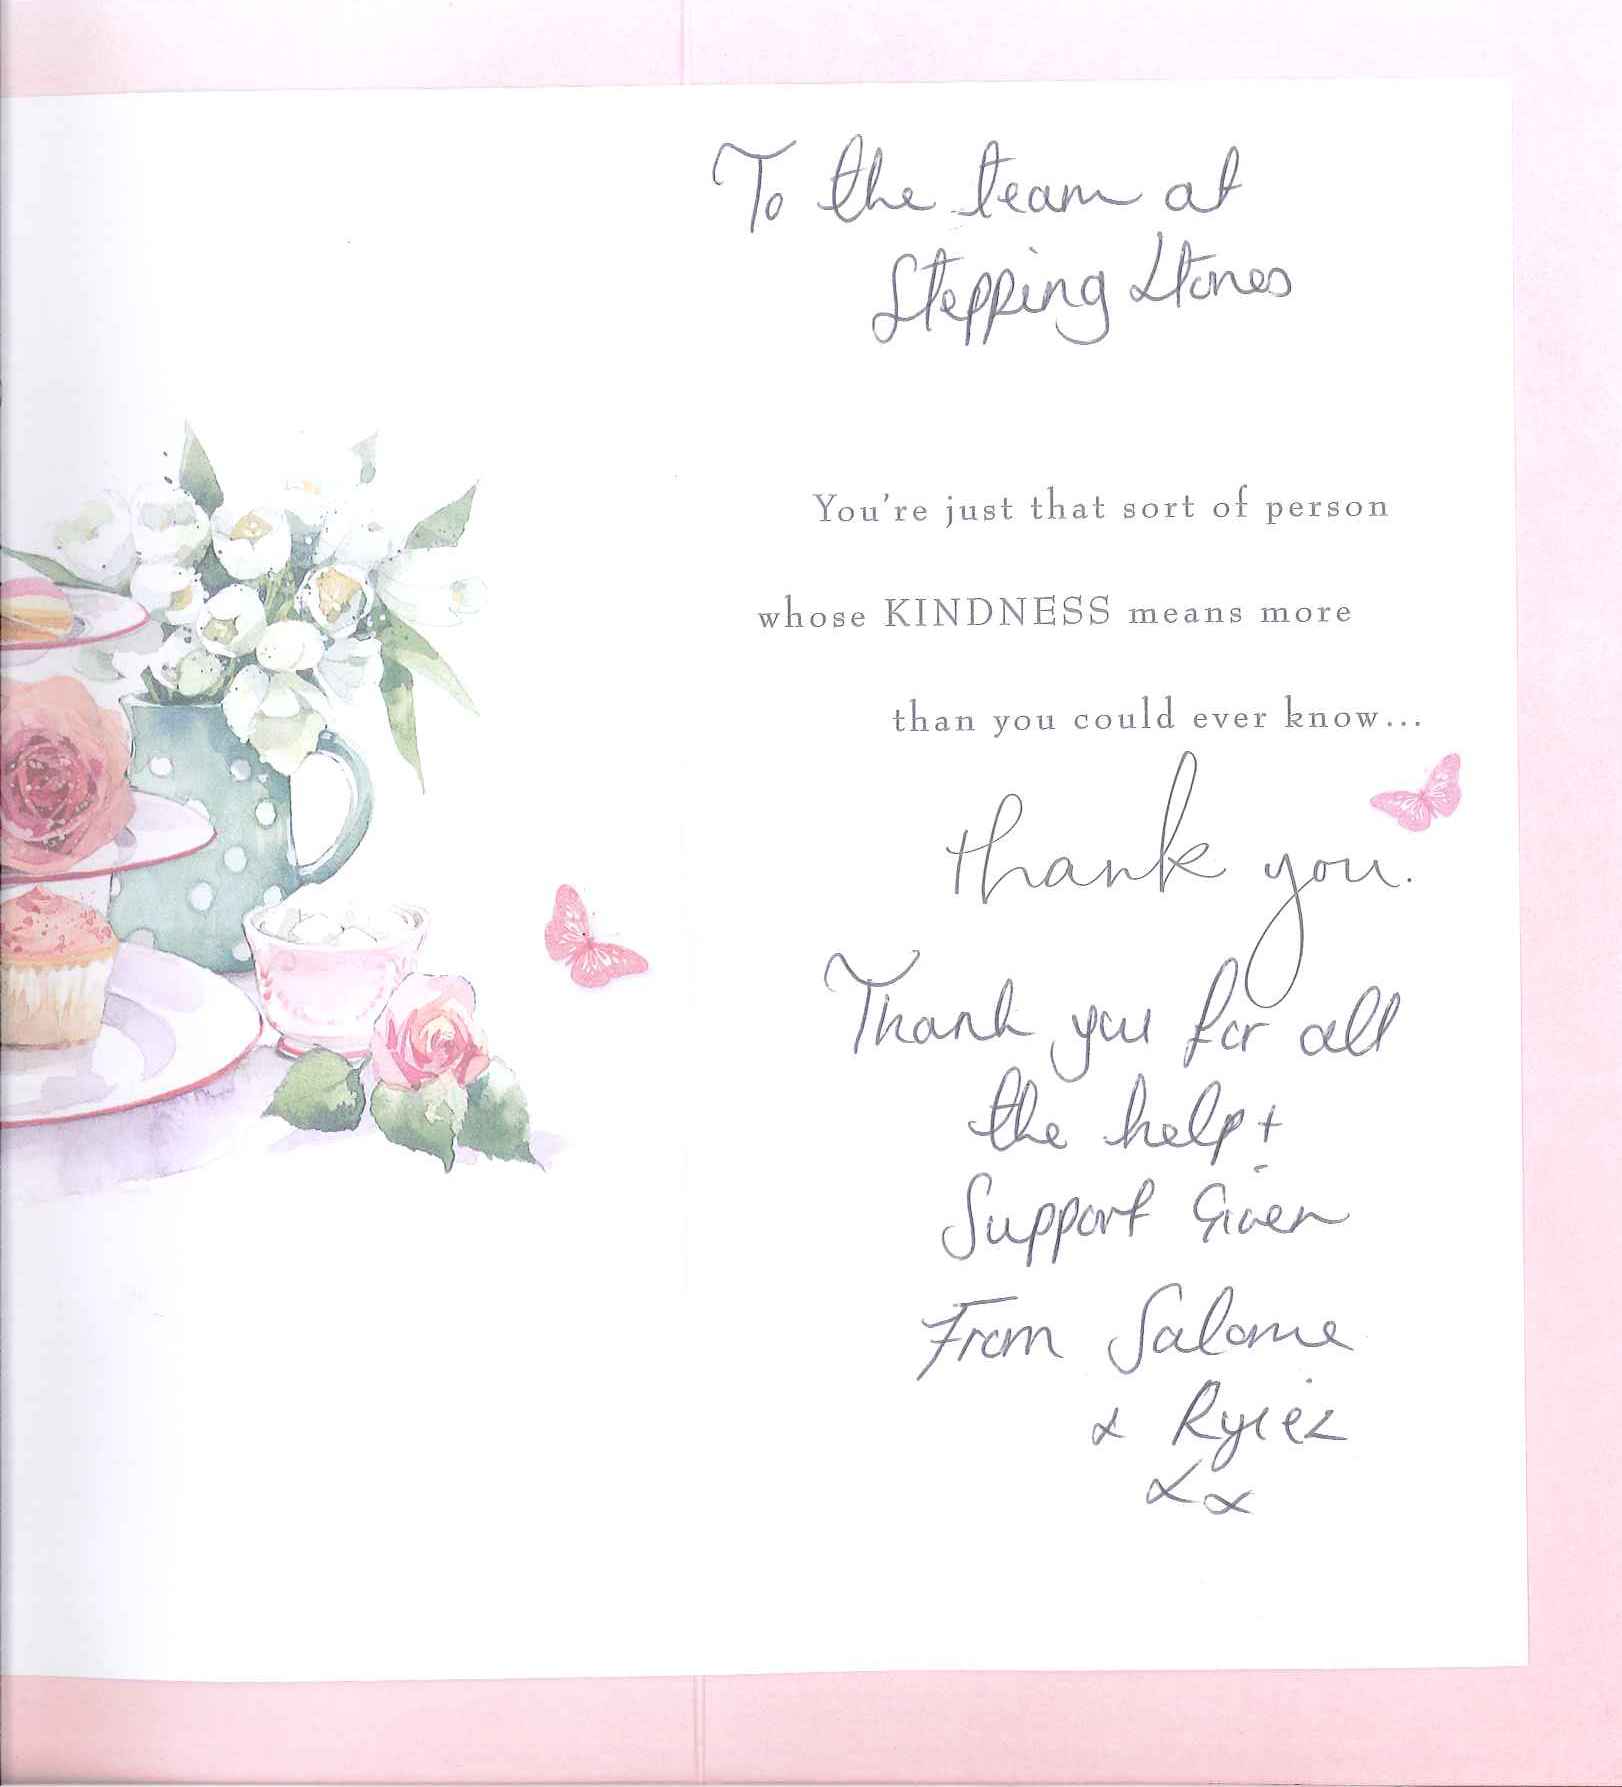 To the team at
Stepping Stones
You're just that sort of person
whose KINDNESS means more
than you could ever know...
thank you.
Thank you for all
the help +
Support Given
From Salome
&
xx